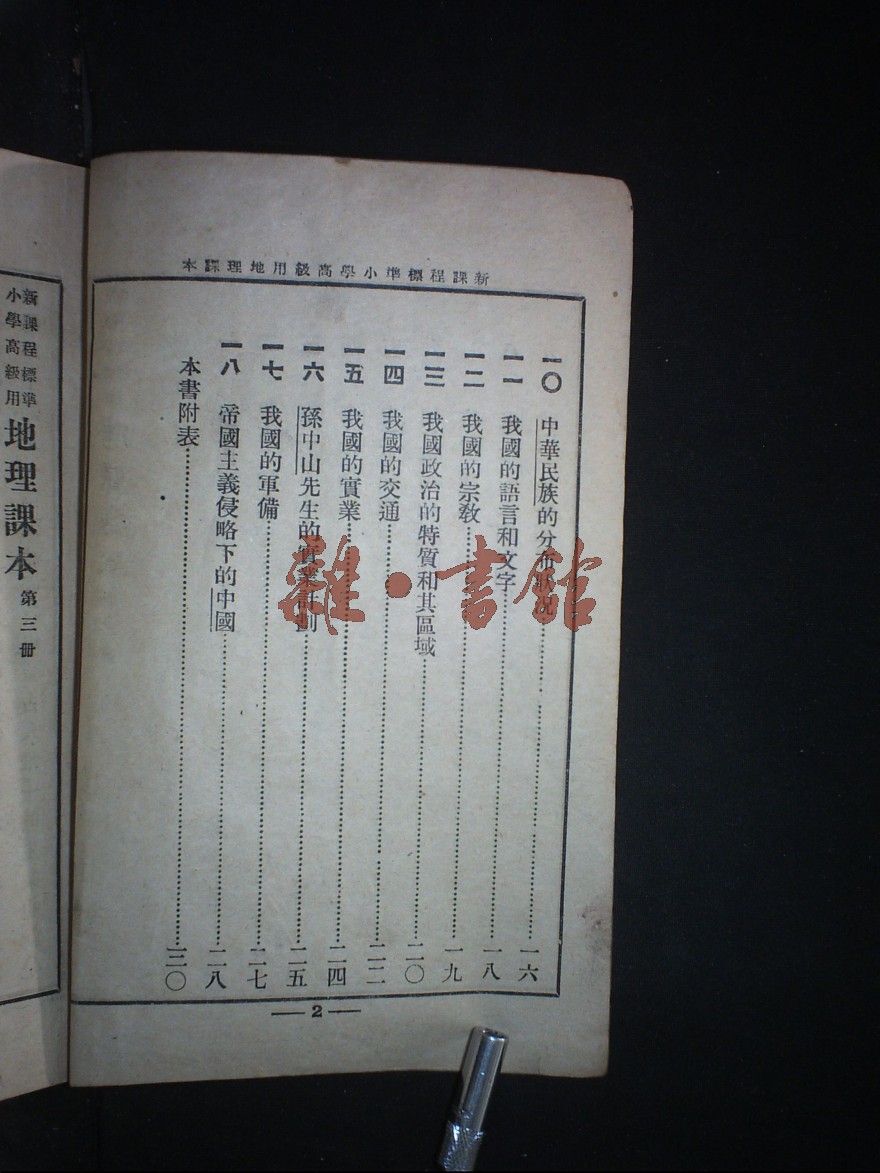 新課程標準小學高級用地理課本
一〇 中華民族的分布狀況 一六
一一 我國的語言和文字 一八
一二 我國的宗教 一九
一三 我國政治的特質和其區域 二〇
一四 我國的交通 二二
一五 我國的實業 二四
一六 孫中山先生的實業計劃 二五
一七 我國的軍備 二七
一八 帝國主義侵略下的中國 二八
本書附表 三〇
2
新課程標準
小學高級用
地理課本 第三冊
雜·書館